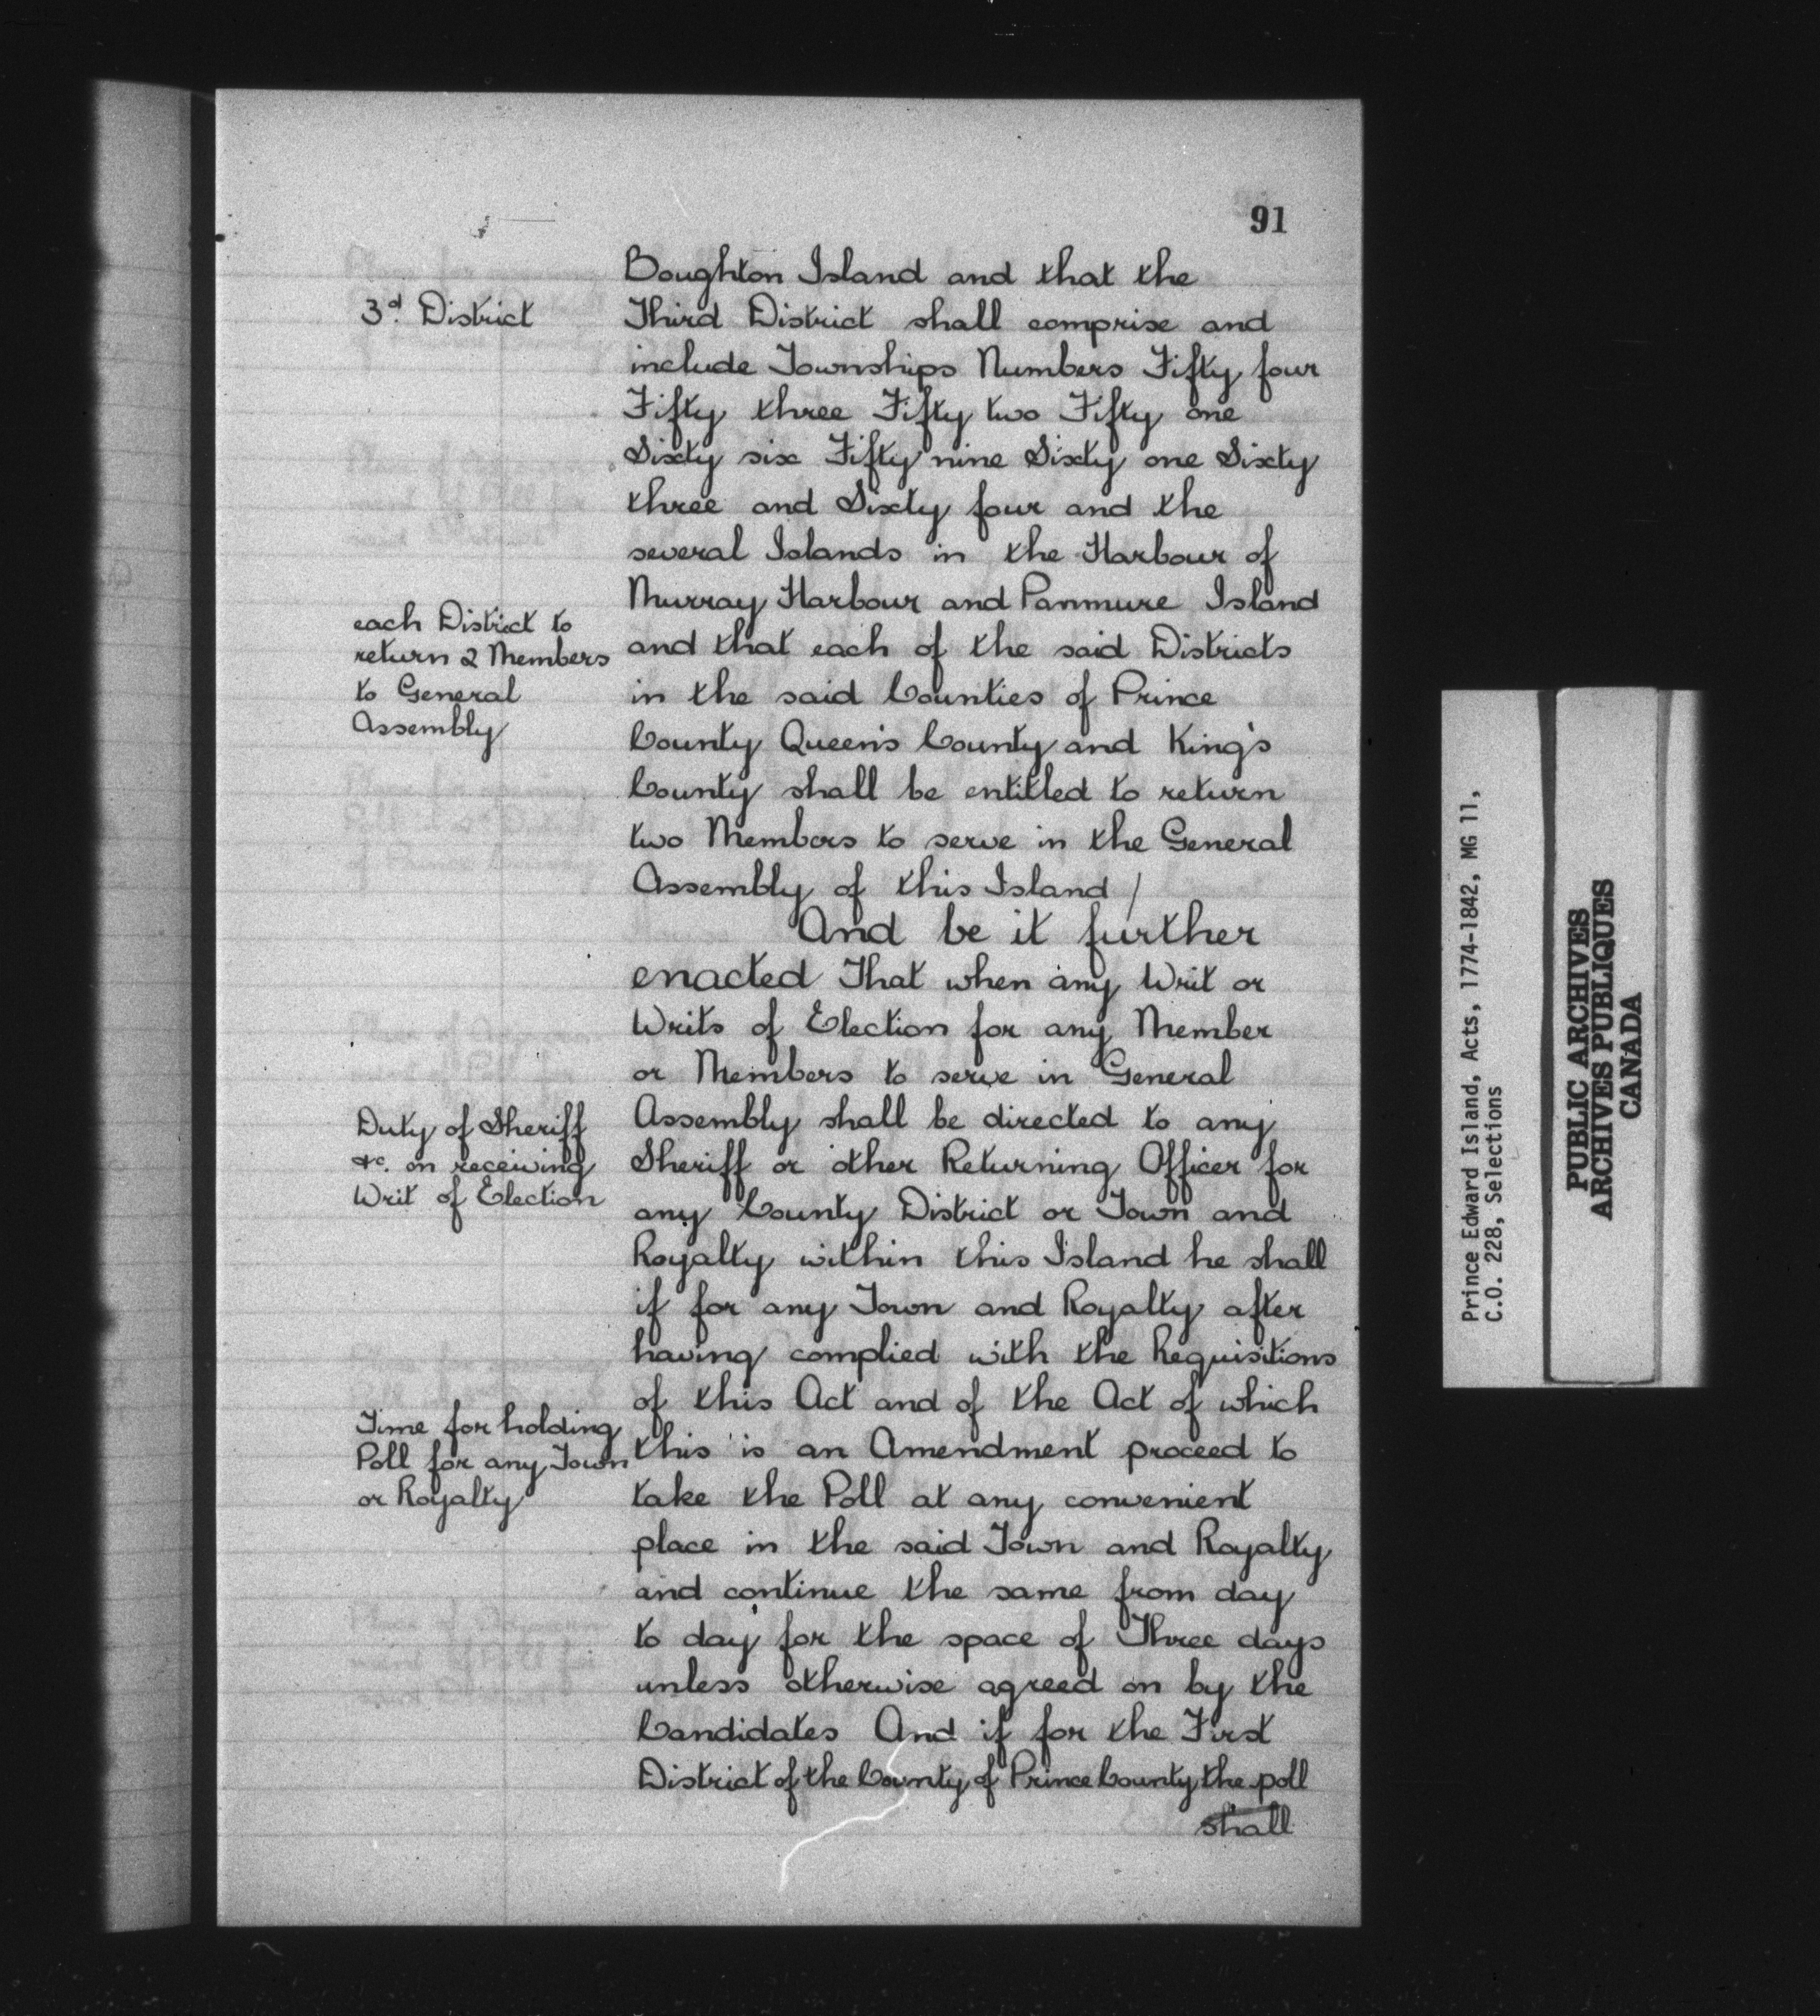 91
Boughton Island and that the
3d. District
Third District shall comprise and
include Townships Numbers Fifty four
Fifty three Fifty two Fifty one
Sixty six Fifty nine Sixty one Sixty
three and Sixty four and the
several Islands in the Harbour of
Murray Harbour and Panmure Island
each District to
return 2 Members
to General
Assembly
and that each of the said Districts
in the said Counties of Prince
County Queen's County and King's
County shall be entitled to return
two Members to serve in the General
Assembly of this Island /
And be it further
enacted That when any Writ or
Writs of Election for any Member
or Members to serve in General
Duty of Sheriff
&c. on receiving
Writ of Election
Assembly shall be directed to any
Sheriff or other Returning Officer for
any County District or Town and
Royalty within this Island he shall
if for any Town and Royalty after
having complied with the Requisitions
of this Act and of the Act of which
Time for holding
Poll for any Town
or Royalty
this is an Amendment proceed to
take the Poll at any convenient
place in the said Town and Royalty
and continue the same from day
to day for the space of Three days
unless otherwise agreed on by the
Candidates And if for the First
District of the County of Prince County the poll
shall
Prince Edward Island, Acts, 1774-1842, MG 11,
C.O. 228, Selections
PUBLIC ARCHIVES
ARCHIVES PUBLIQUES
CANADA